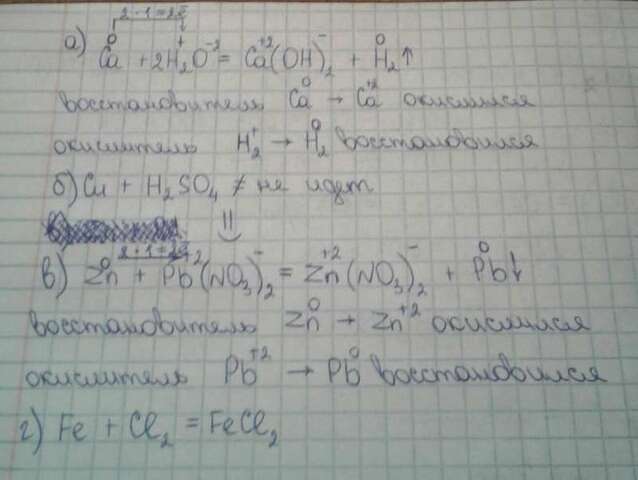 2·1=2ē
а) Ca⁰ + 2H₂⁺O⁻² = Ca⁺²(OH)₂⁻ + H₂⁰↑
восстановитель Ca⁰ → Ca⁺² окислился
окислитель H₂⁺ → H₂⁰ восстановился
б) Cu + H₂SO₄ ≠ не идет
2·1=2ē
в) Zn⁰ + Pb⁺²(NO₃)₂⁻ = Zn⁺²(NO₃)₂⁻ + Pb⁰↓
восстановитель Zn⁰ → Zn⁺² окислился
окислитель Pb⁺² → Pb⁰ восстановился
г) Fe + Cl₂ = FeCl₂